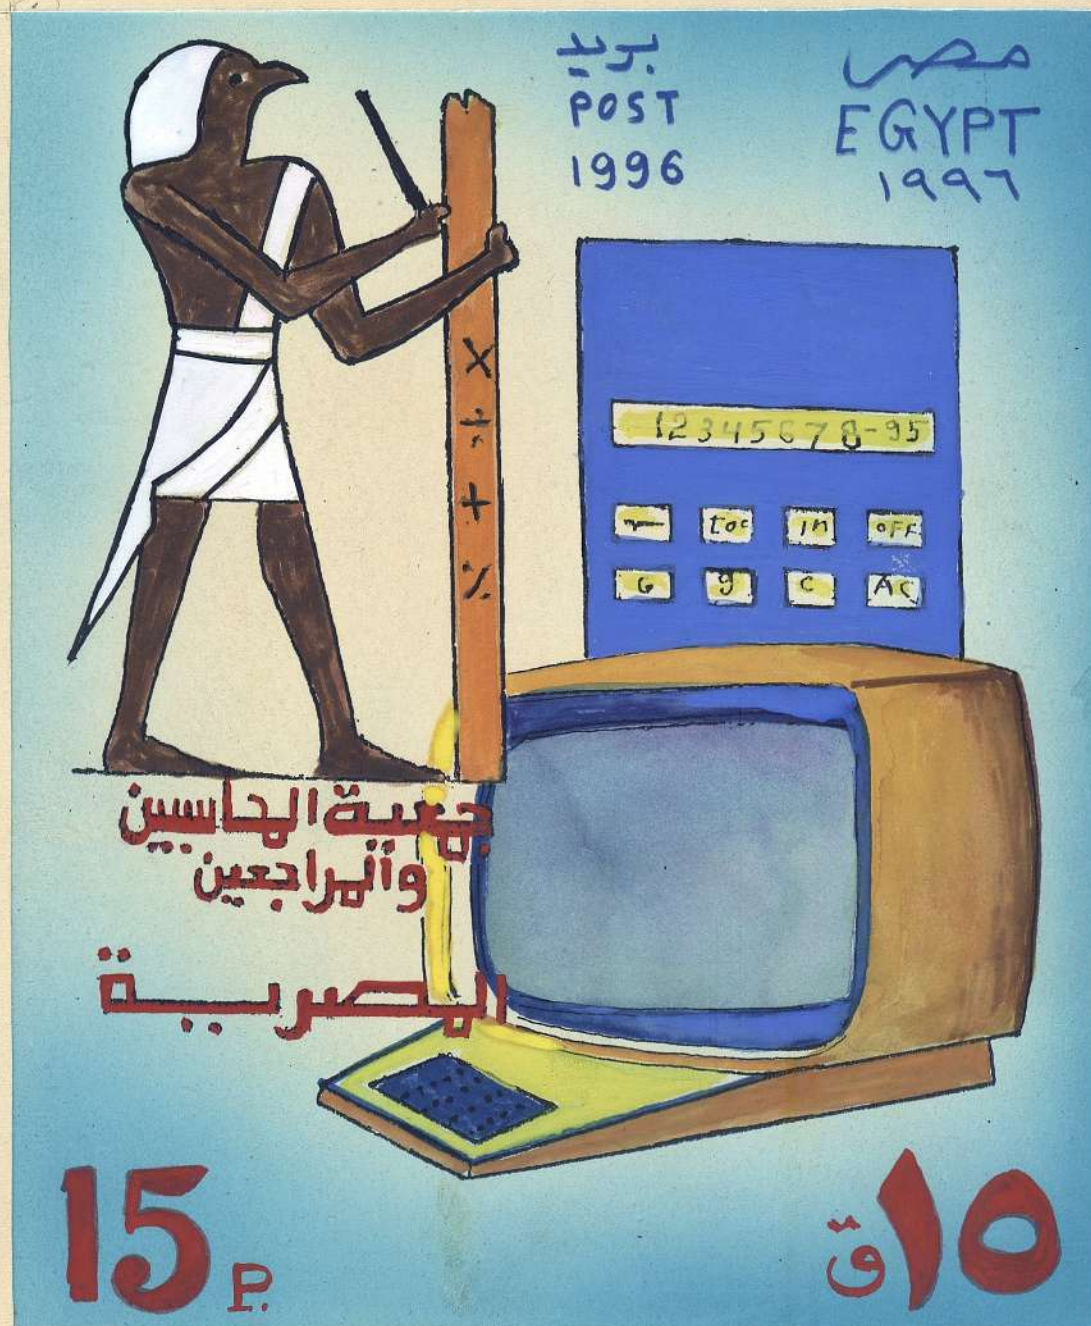 بريد
POST
1996
مصر
EGYPT
١٩٩٦
12345678-95
toc in OFF
G g C AC
×
÷
+
٪
جمعية المحاسبين
والمراجعين
المصرية
15 P.
١٥ ق